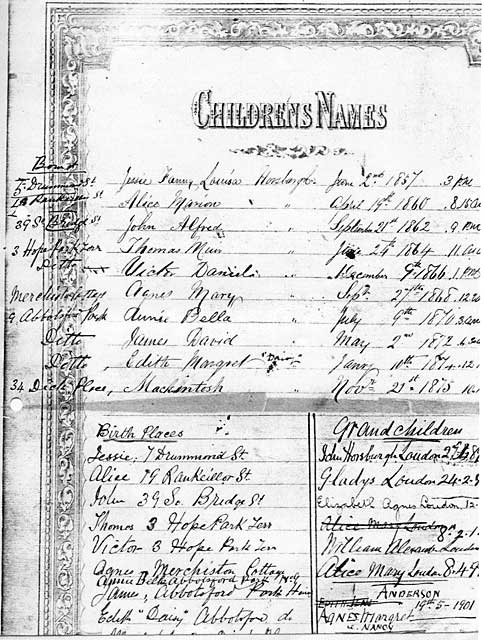 CHILDRENS NAMES
Born
7 Drummond St Jessie Fanny Louisa Horsburgh June 2nd 1857 3 P.M.
19 Rankeillor St Alice Marion " April 19th 1860
39 So Bridge St John Alfred " September 21st 1862 9 P.M.
3 Hope Park Terr Thomas Muir " 24th 1864 11
Ditto Victor Daniel " 9th 1866 1 P.M.
Merchiston Cottage Agnes Mary " Sept 27th 1868
9 Abbotsford Park Annie Bella July 9th 1870
Ditto James David May 2nd 1872
Ditto, Edith Margret "Daisy" Janry 10th 1874
34 Dick Place, Mackintosh Novr 21st 1875
Birth Places
Jessie, 7 Drummond St
Alice 19 Rankeillor St
John 39 So Bridge St
Thomas 3 Hope Park Terr
Victor 3 Hope Park Terr
Agnes Merchiston Cottage
Annie Bella Abbotsford Park No 9
James, Abbotsford Park
Edith "Daisy" Abbotsford do
Grandchildren
John Horsburgh Loudon
Gladys Loudon 24-2-
Elizabeth Agnes Loudon, 12-
Alice Mary Loudon
William Alexander Loudon
Alice Mary Loudon 8.4.9
ANDERSON
19th 5-1901
AGNES Margret
NANCY